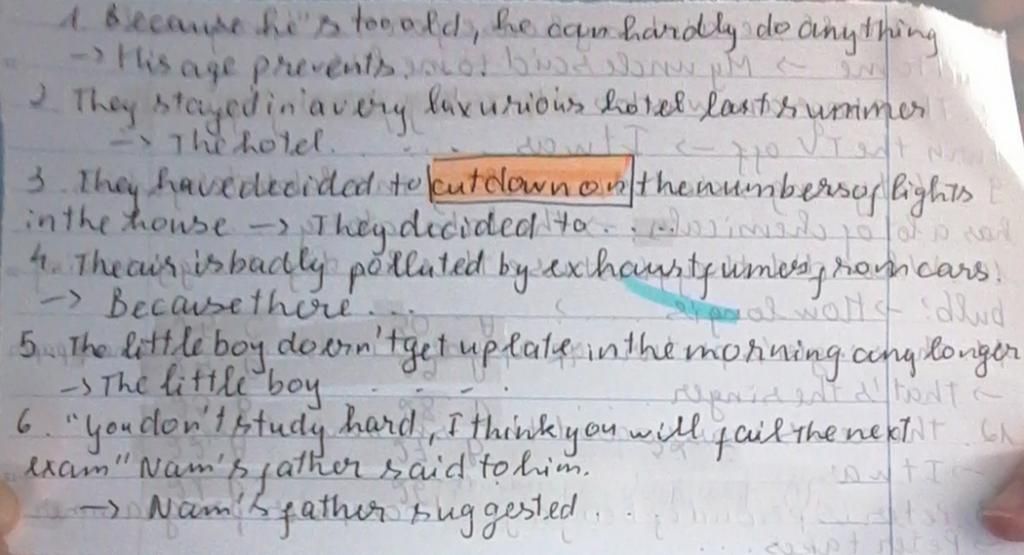 1. Because he's too old, he can hardly do anything
-> His age prevents.
2. They stayed in a very luxurious hotel last summer
-> The hotel. . . . .
3. They have decided to cut down on the numbers of lights
in the house -> They decided to . . . ...
4. The air is badly polluted by exhaust fumes from cars.
-> Because there ...
5. The little boy doesn't get up late in the morning any longer
-> The little boy . . . .
6. "you don't study hard, I think you will fail the next
exam" Nam's father said to him.
-> Nam's father suggested . . .